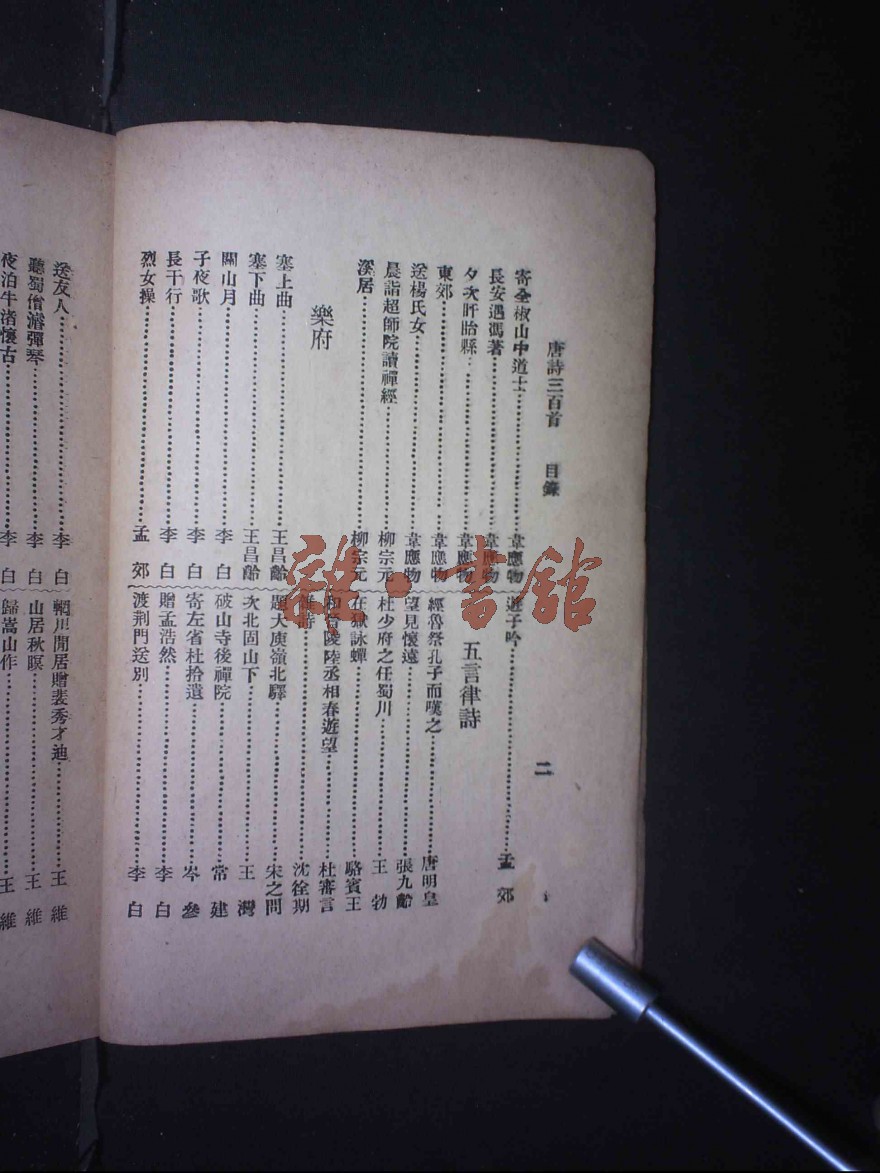 唐詩三百首　目錄　二
寄全椒山中道士⋯⋯韋應物
長安遇馮著⋯⋯韋應物
夕次盱眙縣⋯⋯韋應物
東郊⋯⋯韋應物
送楊氏女⋯⋯韋應物
晨詣超師院讀禪經⋯⋯柳宗元
溪居⋯⋯柳宗元
樂府
塞上曲⋯⋯王昌齡
塞下曲⋯⋯王昌齡
關山月⋯⋯李白
子夜歌⋯⋯李白
長干行⋯⋯李白
烈女操⋯⋯孟郊
遊子吟⋯⋯孟郊
五言律詩
經魯祭孔子而嘆之⋯⋯唐明皇
望見懷遠⋯⋯張九齡
杜少府之任蜀川⋯⋯王勃
在獄詠蟬⋯⋯駱賓王
和晉陵陸丞相春遊望⋯⋯杜審言
雜詩⋯⋯沈佺期
題大庾嶺北驛⋯⋯宋之問
次北固山下⋯⋯王灣
破山寺後禪院⋯⋯常建
寄左省杜拾遺⋯⋯岑參
贈孟浩然⋯⋯李白
渡荆門送別⋯⋯李白
送友人⋯⋯李白
聽蜀僧濬彈琴⋯⋯李白
夜泊牛渚懷古⋯⋯李白
輞川閒居贈裴秀才迪⋯⋯王維
山居秋暝⋯⋯王維
歸嵩山作⋯⋯王維
雜·書館